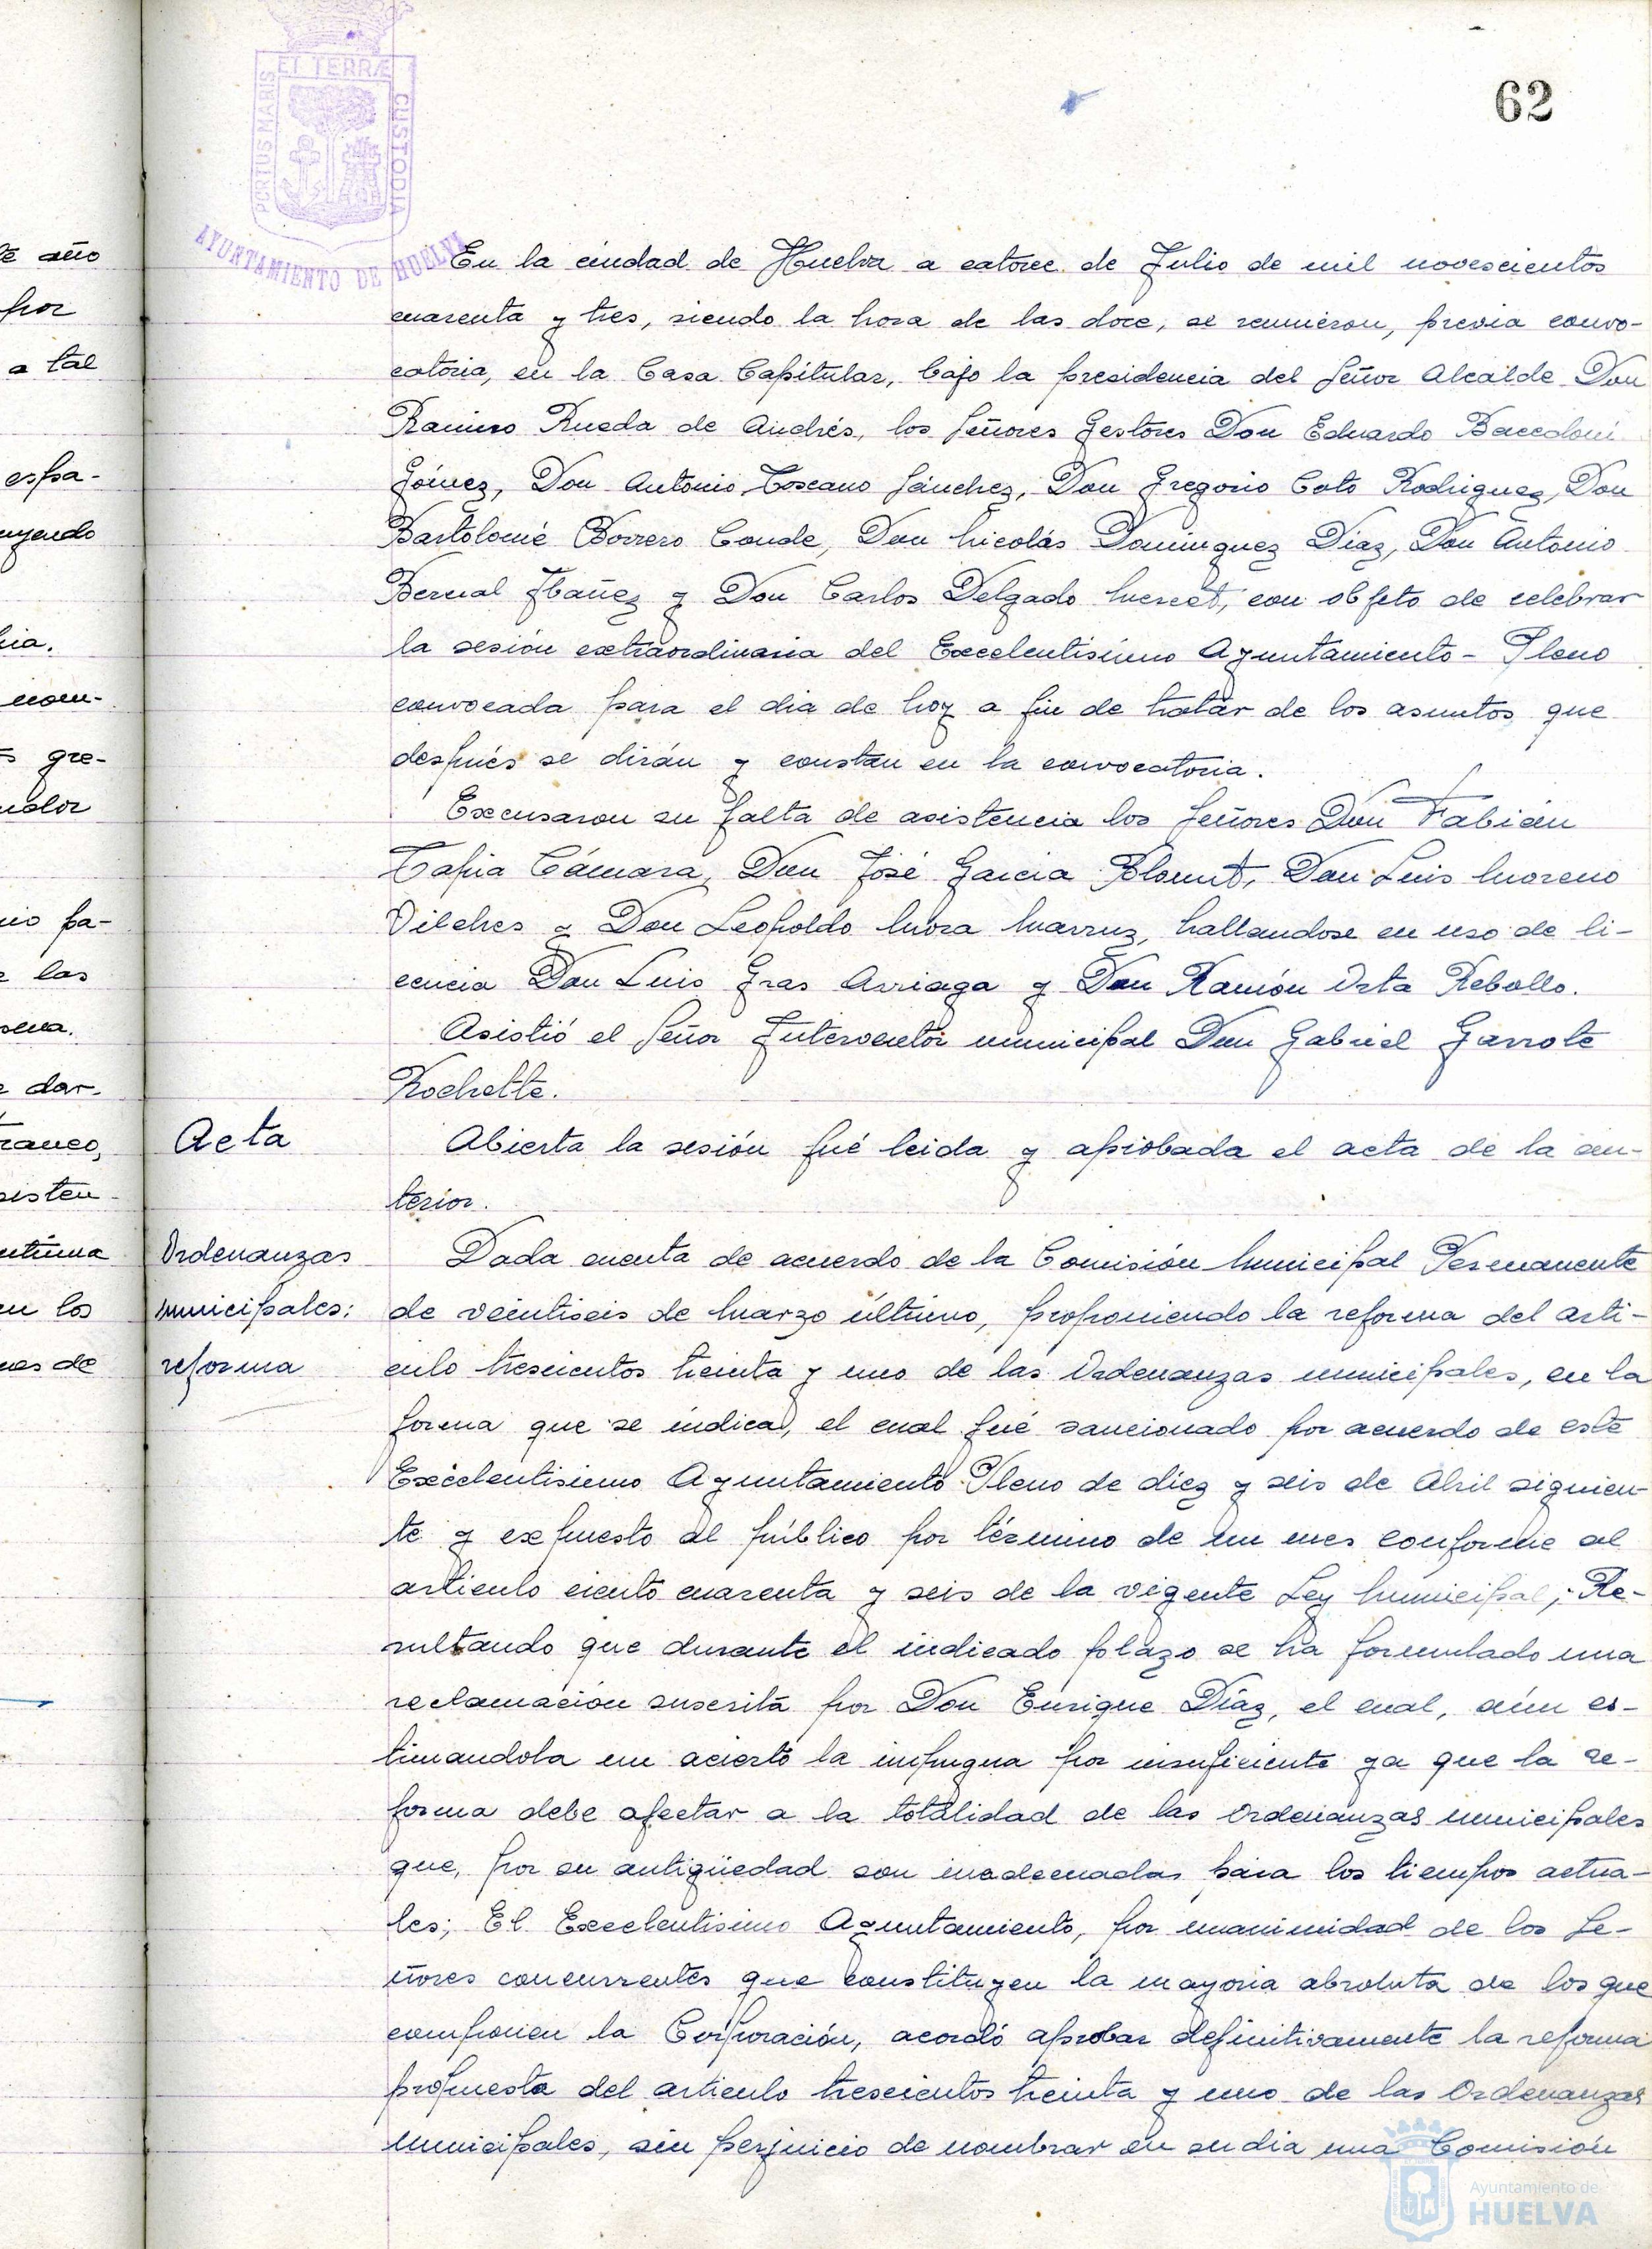 62
PORTUS MARIS ET TERRÆ CUSTODIA
AYUNTAMIENTO DE HUELVA
En la ciudad de Huelva a catorce de Julio de mil novescientos
cuarenta y tres, siendo la hora de las doce, se reunieron, previa convo-
catoria, en la Casa Capitular, bajo la presidencia del Señor Alcalde Don
Ramiro Rueda de Andrés, los Señores Gestores Don Eduardo
Gómez, Don Antonio Toscano Sánchez, Don Gregorio Coto Rodriguez, Don
Bartolomé Borrero Conde, Don Nicolás Dominguez Diaz, Don Antonio
Bernal Ibañez y Don Carlos Delgado con objeto de celebrar
la sesión extraordinaria del Excelentisimo Ayuntamiento - Pleno
convocada para el dia de hoy a fin de tratar de los asuntos que
después se dirán y constan en la convocatoria.
Excusaron su falta de asistencia los Señores Don Fabián
Tapia Cámara, Don José Garcia Don Luis Moreno
Vilches y Don Leopoldo Mora hallandose en uso de li-
cencia Don Luis Gras Arriaga y Don Ramón Orta Rebollo.
Asistió el Señor Interventor municipal Don Gabriel Garrote
Rochette.
Acta
Abierta la sesión fué leida y aprobada el acta de la an-
terior.
Ordenanzas
municipales:
reforma
Dada cuenta de acuerdo de la Comisión Municipal Permanente
de veintiseis de Marzo último, proponiendo la reforma del arti-
culo trescientos treinta y uno de las Ordenanzas municipales, en la
forma que se indica, el cual fué sancionado por acuerdo de este
Excelentisimo Ayuntamiento Pleno de diez y seis de Abril siguien-
te y expuesto al público por término de un mes conforme al
articulo ciento cuarenta y seis de la vigente Ley Municipal; Re-
sultando que durante el indicado plazo se ha formulado una
reclamación suscrita por Don Enrique Díaz, el cual, aún es-
timandola un acierto la impugna por insuficiente ya que la re-
forma debe afectar a la totalidad de las Ordenanzas municipales
que, por su antigüedad son inadecuadas para los tiempos actua-
les; El Excelentisimo Ayuntamiento, por unanimidad de los Se-
ñores concurrentes que constituyen la mayoria absoluta de los que
componen la Corporación, acordó aprobar definitivamente la reforma
propuesta del articulo trescientos treinta y uno de las Ordenanzas
municipales, sin perjuicio de nombrar en su dia una Comisión
Ayuntamiento de
HUELVA